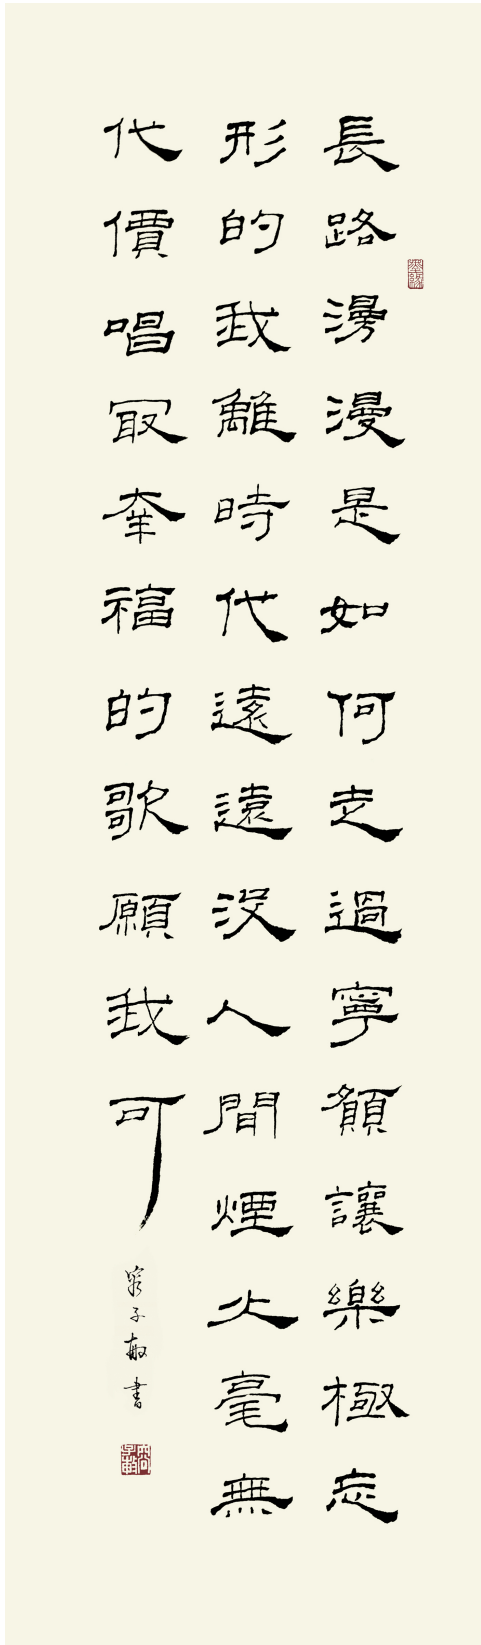 長路漫漫是如何走過寧願讓樂極忘
形的我離時代遠遠沒人間煙火毫無
代價唱最幸福的歌願我可
子敏書